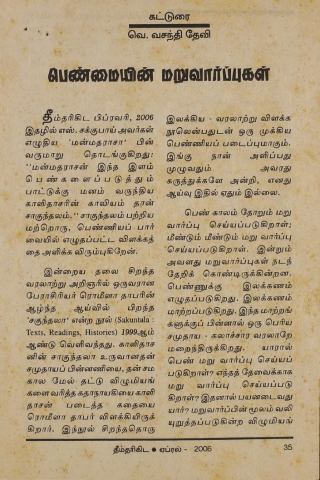 கட்டுரை
வெ. வசந்தி தேவி
பெண்மையின் மறுவார்ப்புகள்
தீம்தரிகிட பிப்ரவரி, 2006
இதழில் எஸ். சக்குபாய் அவர்கள்
எழுதிய 'மன்மதராசா' பின்
வருமாறு தொடங்குகிறது:
"மன்மதராசன் இந்த இளம்
பெண்களைப்படுத்தும்
பாட்டுக்கு மனம் வருந்திய
காளிதாசரின் காவியம் தான்
சாகுந்தலம்." சாகுந்தலம் பற்றிய
மற்றொரு, பெண்ணியப் பார்
வையில் எழுதப்பட்ட விளக்கத்
தை அளிக்க விரும்புகிறேன்.
இன்றைய தலை சிறந்த
வரலாற்று அறிஞரில் ஒருவரான
பேராசிரியர் ரொமிளா தாபரின்
ஆழ்ந்த ஆய்வில் பிறந்த
'சகுந்தலா' என்ற நூல் (Sakuntala :
Texts, Readings, Histories) 1999ஆம்
ஆண்டு வெளிவந்தது. காளிதாச
னின் சாகுந்தலா உருவானதன்
சமுதாயப் பின்னணியை, தன் சம
கால மேல் தட்டு விழுமியங்
களை வரித்த கதாநாயகியை காளி
தாசன் படைத்த கதையை
ரொமிளா தாபர் விளக்கியிருக்
கிறார். இந்நூல் சிறந்ததொரு
இலக்கிய - வரலாற்று விளக்க
நூலென்பதுடன் ஒரு முக்கிய
பெண்ணியப் படைப்புமாகும்.
இங்கு நான் அளிப்பது
முழுவதும் அவரது
கருத்துக்களே அன்றி, எனது
ஆய்வு இதில் ஏதும் இல்லை.
பெண் காலம் தோறும் மறு
வார்ப்பு செய்யப்படுகிறாள்;
மீண்டும் மீண்டும் மறு வார்ப்பு
செய்யப்படுகிறாள். இன்றும்
அவனது மறுவார்ப்புகள் நடந்
தேறிக் கொண்டிருக்கின்றன.
பெண்ணுக்கு இலக்கணம்
எழுதப்படுகிறது. இலக்கணம்
மாற்றப்படுகிறது. இந்த மாற்றங்
களுக்குப் பின்னால் ஒரு பெரிய
சமுதாய - கலாச்சார வரலாறே
மறைந்திருக்கிறது. யாரால்
பெண் மறு வார்ப்பு செய்யப்
படுகிறாள்? எந்தத் தேவைக்காக
மறு வார்ப்பு செய்யப்படு
கிறாள்? இதனால் பயனடைவது
யார்? மறுவார்ப்பின் மூலம் வலி
யுறுத்தப்படுகின்ற விழுமியங்
தீம்தரிகிட ● ஏப்ரல் - 2006
35